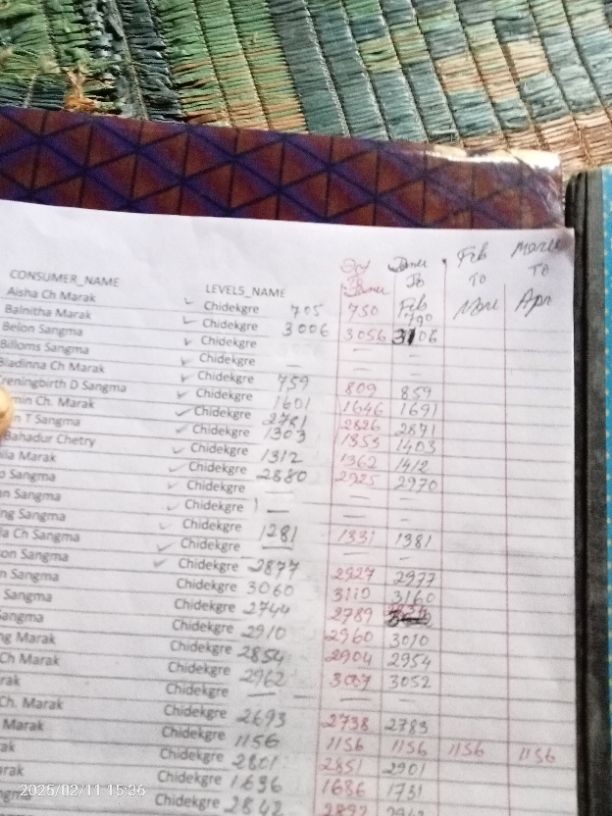 Feb March
To To
CONSUMER_NAME LEVEL5_NAME To Mar Apr
Aisha Ch Marak ✓ Chidekgre 705 750 Feb 790
Balnitha Marak ✓ Chidekgre 3006 3056 3106
Belon Sangma ✓ Chidekgre — — —
Billoms Sangma ✓ Chidekgre — — —
Biadinna Ch Marak ✓ Chidekgre 759 809 859
reningbirth D Sangma ✓ Chidekgre 1601 1646 1691
min Ch. Marak ✓ Chidekgre 2781 2826 2871
n T Sangma ✓ Chidekgre 1303 1353 1403
Bahadur Chetry ✓ Chidekgre 1312 1362 1412
ila Marak ✓ Chidekgre 2880 2925 2970
o Sangma ✓ Chidekgre — — —
an Sangma ✓ Chidekgre — — —
ng Sangma ✓ Chidekgre 1281 1331 1381
la Ch Sangma ✓ Chidekgre — — —
on Sangma ✓ Chidekgre 2877 2927 2977
n Sangma Chidekgre 3060 3110 3160
Sangma Chidekgre 2744 2789
Sangma Chidekgre 2910 2960 3010
ng Marak Chidekgre 2854 2904 2954
Ch Marak Chidekgre 2962 3007 3052
rak Chidekgre — — —
Ch. Marak Chidekgre 2693 2738 2783
Marak Chidekgre 1156 1156 1156 1156 1156
ak Chidekgre 2801 2851 2901
arak Chidekgre 1636 1686 1731
ngma Chidekgre 2842 2892
2025/02/11 15:36